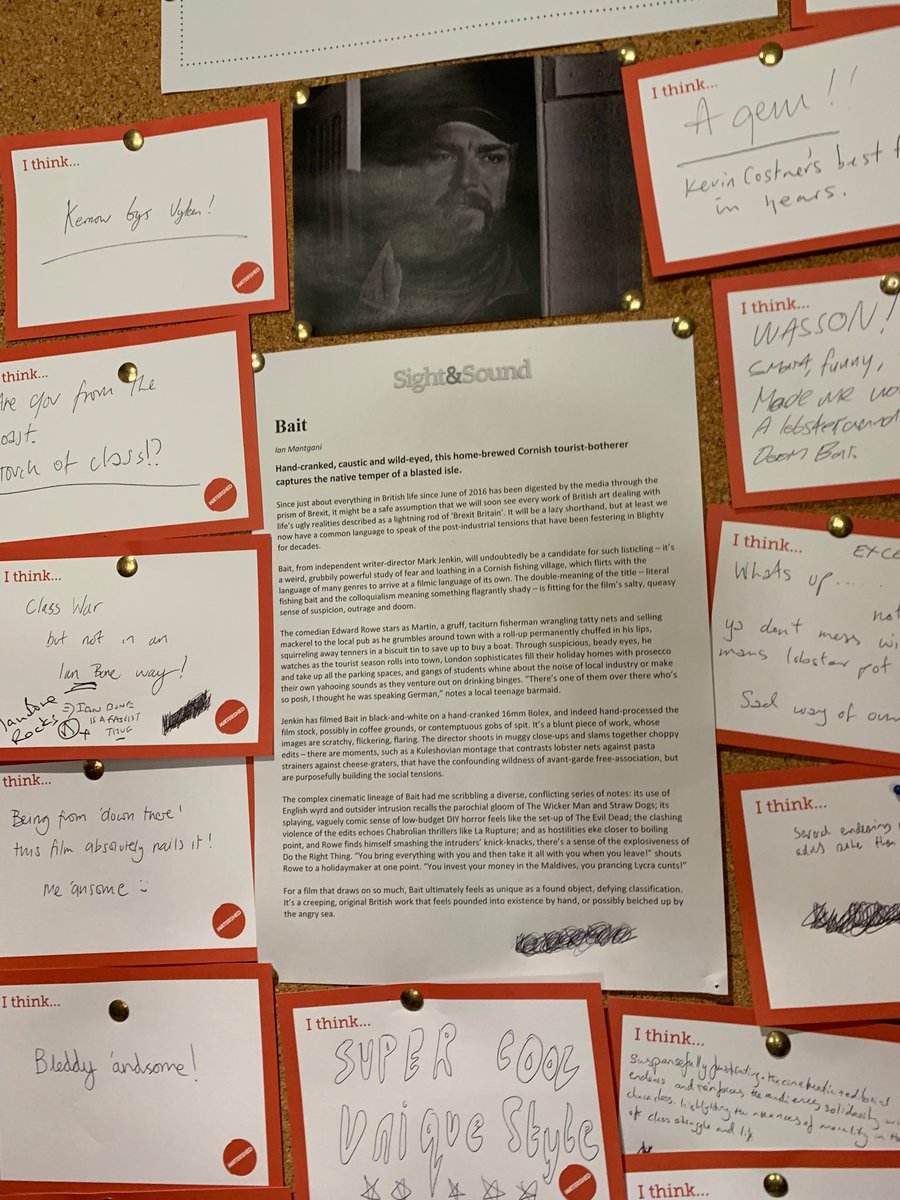 I think...
Kernow bys Vyken!
WATERSHED
I think...
A gem!!
Kevin Costner's best f
in years.
think...
Are you from the
oast.
Touch of class!?
WATERSHED
I think...
WASSON!
Smart, funny,
Made me
A lobster
Doom Bar.
I think...
Class War
but not in an
Ian Bone way!
Ian Bone
Rocks
IAN BONE
IS A FASCIST
THUG
WATERSHED
Sight&Sound
Bait
Ian Mantgani
Hand-cranked, caustic and wild-eyed, this home-brewed Cornish tourist-botherer
captures the native temper of a blasted isle.
Since just about everything in British life since June of 2016 has been digested by the media through the
prism of Brexit, it might be a safe assumption that we will soon see every work of British art dealing with
life's ugly realities described as a lightning rod of 'Brexit Britain'. It will be a lazy shorthand, but at least we
now have a common language to speak of the post-industrial tensions that have been festering in Blighty
for decades.
Bait, from independent writer-director Mark Jenkin, will undoubtedly be a candidate for such listicling – it's
a weird, grubbily powerful study of fear and loathing in a Cornish fishing village, which flirts with the
language of many genres to arrive at a filmic language of its own. The double-meaning of the title – literal
fishing bait and the colloquialism meaning something flagrantly shady – is fitting for the film's salty, queasy
sense of suspicion, outrage and doom.
The comedian Edward Rowe stars as Martin, a gruff, taciturn fisherman wrangling tatty nets and selling
mackerel to the local pub as he grumbles around town with a roll-up permanently chuffed in his lips,
squirreling away tenners in a biscuit tin to save up to buy a boat. Through suspicious, beady eyes, he
watches as the tourist season rolls into town, London sophisticates fill their holiday homes with prosecco
and take up all the parking spaces, and gangs of students whine about the noise of local industry or make
their own yahooing sounds as they venture out on drinking binges. "There's one of them over there who's
so posh, I thought he was speaking German," notes a local teenage barmaid.
Jenkin has filmed Bait in black-and-white on a hand-cranked 16mm Bolex, and indeed hand-processed the
film stock, possibly in coffee grounds, or contemptuous gobs of spit. It's a blunt piece of work, whose
images are scratchy, flickering, flaring. The director shoots in muggy close-ups and slams together choppy
edits – there are moments, such as a Kuleshovian montage that contrasts lobster nets against pasta
strainers against cheese-graters, that have the confounding wildness of avant-garde free-association, but
are purposefully building the social tensions.
The complex cinematic lineage of Bait had me scribbling a diverse, conflicting series of notes: its use of
English wyrd and outsider intrusion recalls the parochial gloom of The Wicker Man and Straw Dogs; its
splaying, vaguely comic sense of low-budget DIY horror feels like the set-up of The Evil Dead; the clashing
violence of the edits echoes Chabrolian thrillers like La Rupture; and as hostilities eke closer to boiling
point, and Rowe finds himself smashing the intruders' knick-knacks, there's a sense of the explosiveness of
Do the Right Thing. "You bring everything with you and then take it all with you when you leave!" shouts
Rowe to a holidaymaker at one point. "You invest your money in the Maldives, you prancing Lycra cunts!"
For a film that draws on so much, Bait ultimately feels as unique as a found object, defying classification.
It's a creeping, original British work that feels pounded into existence by hand, or possibly belched up by
the angry sea.
I think...
EXCE
Whats up......
not
yo don't mess wi
mans lobster pot
Sad way of our
think...
Being from 'down there'
this film absolutely nails it!
Me 'ansome :)
WATERSHED
I think...
edits rather than
I think...
Bleddy 'andsome!
WATERSHED
I think...
SUPER COOL
Unique Style
WATERSHED
I think...
Suspensefully frustrating, the
endears and reinforces the audiences solidarity wi
characters, highlighting the nuances of morality in the
of class struggle and life
I think...